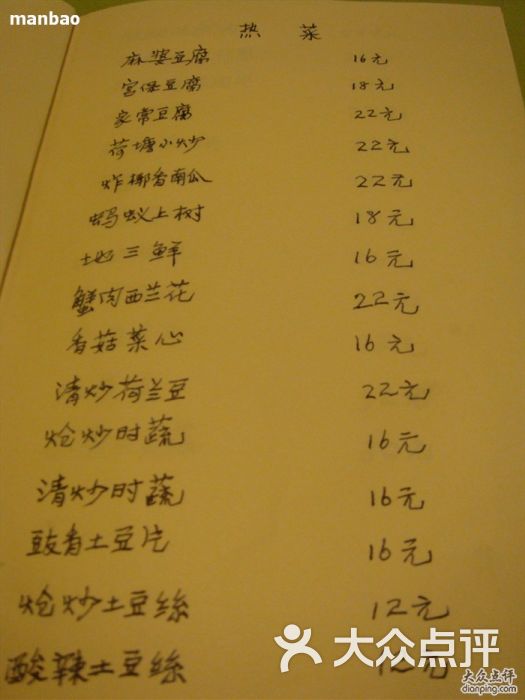 manbao
热 菜
麻婆豆腐 16元
宫保豆腐 18元
家常豆腐 22元
荷塘小炒 22元
炸椰香南瓜 22元
蚂蚁上树 18元
地三鲜 16元
蟹肉西兰花 22元
香菇菜心 16元
清炒荷兰豆 22元
炝炒时蔬 16元
清炒时蔬 16元
豉香土豆片 16元
炝炒土豆丝 12元
酸辣土豆丝 12元
大众点评
大众点评
dianping.com